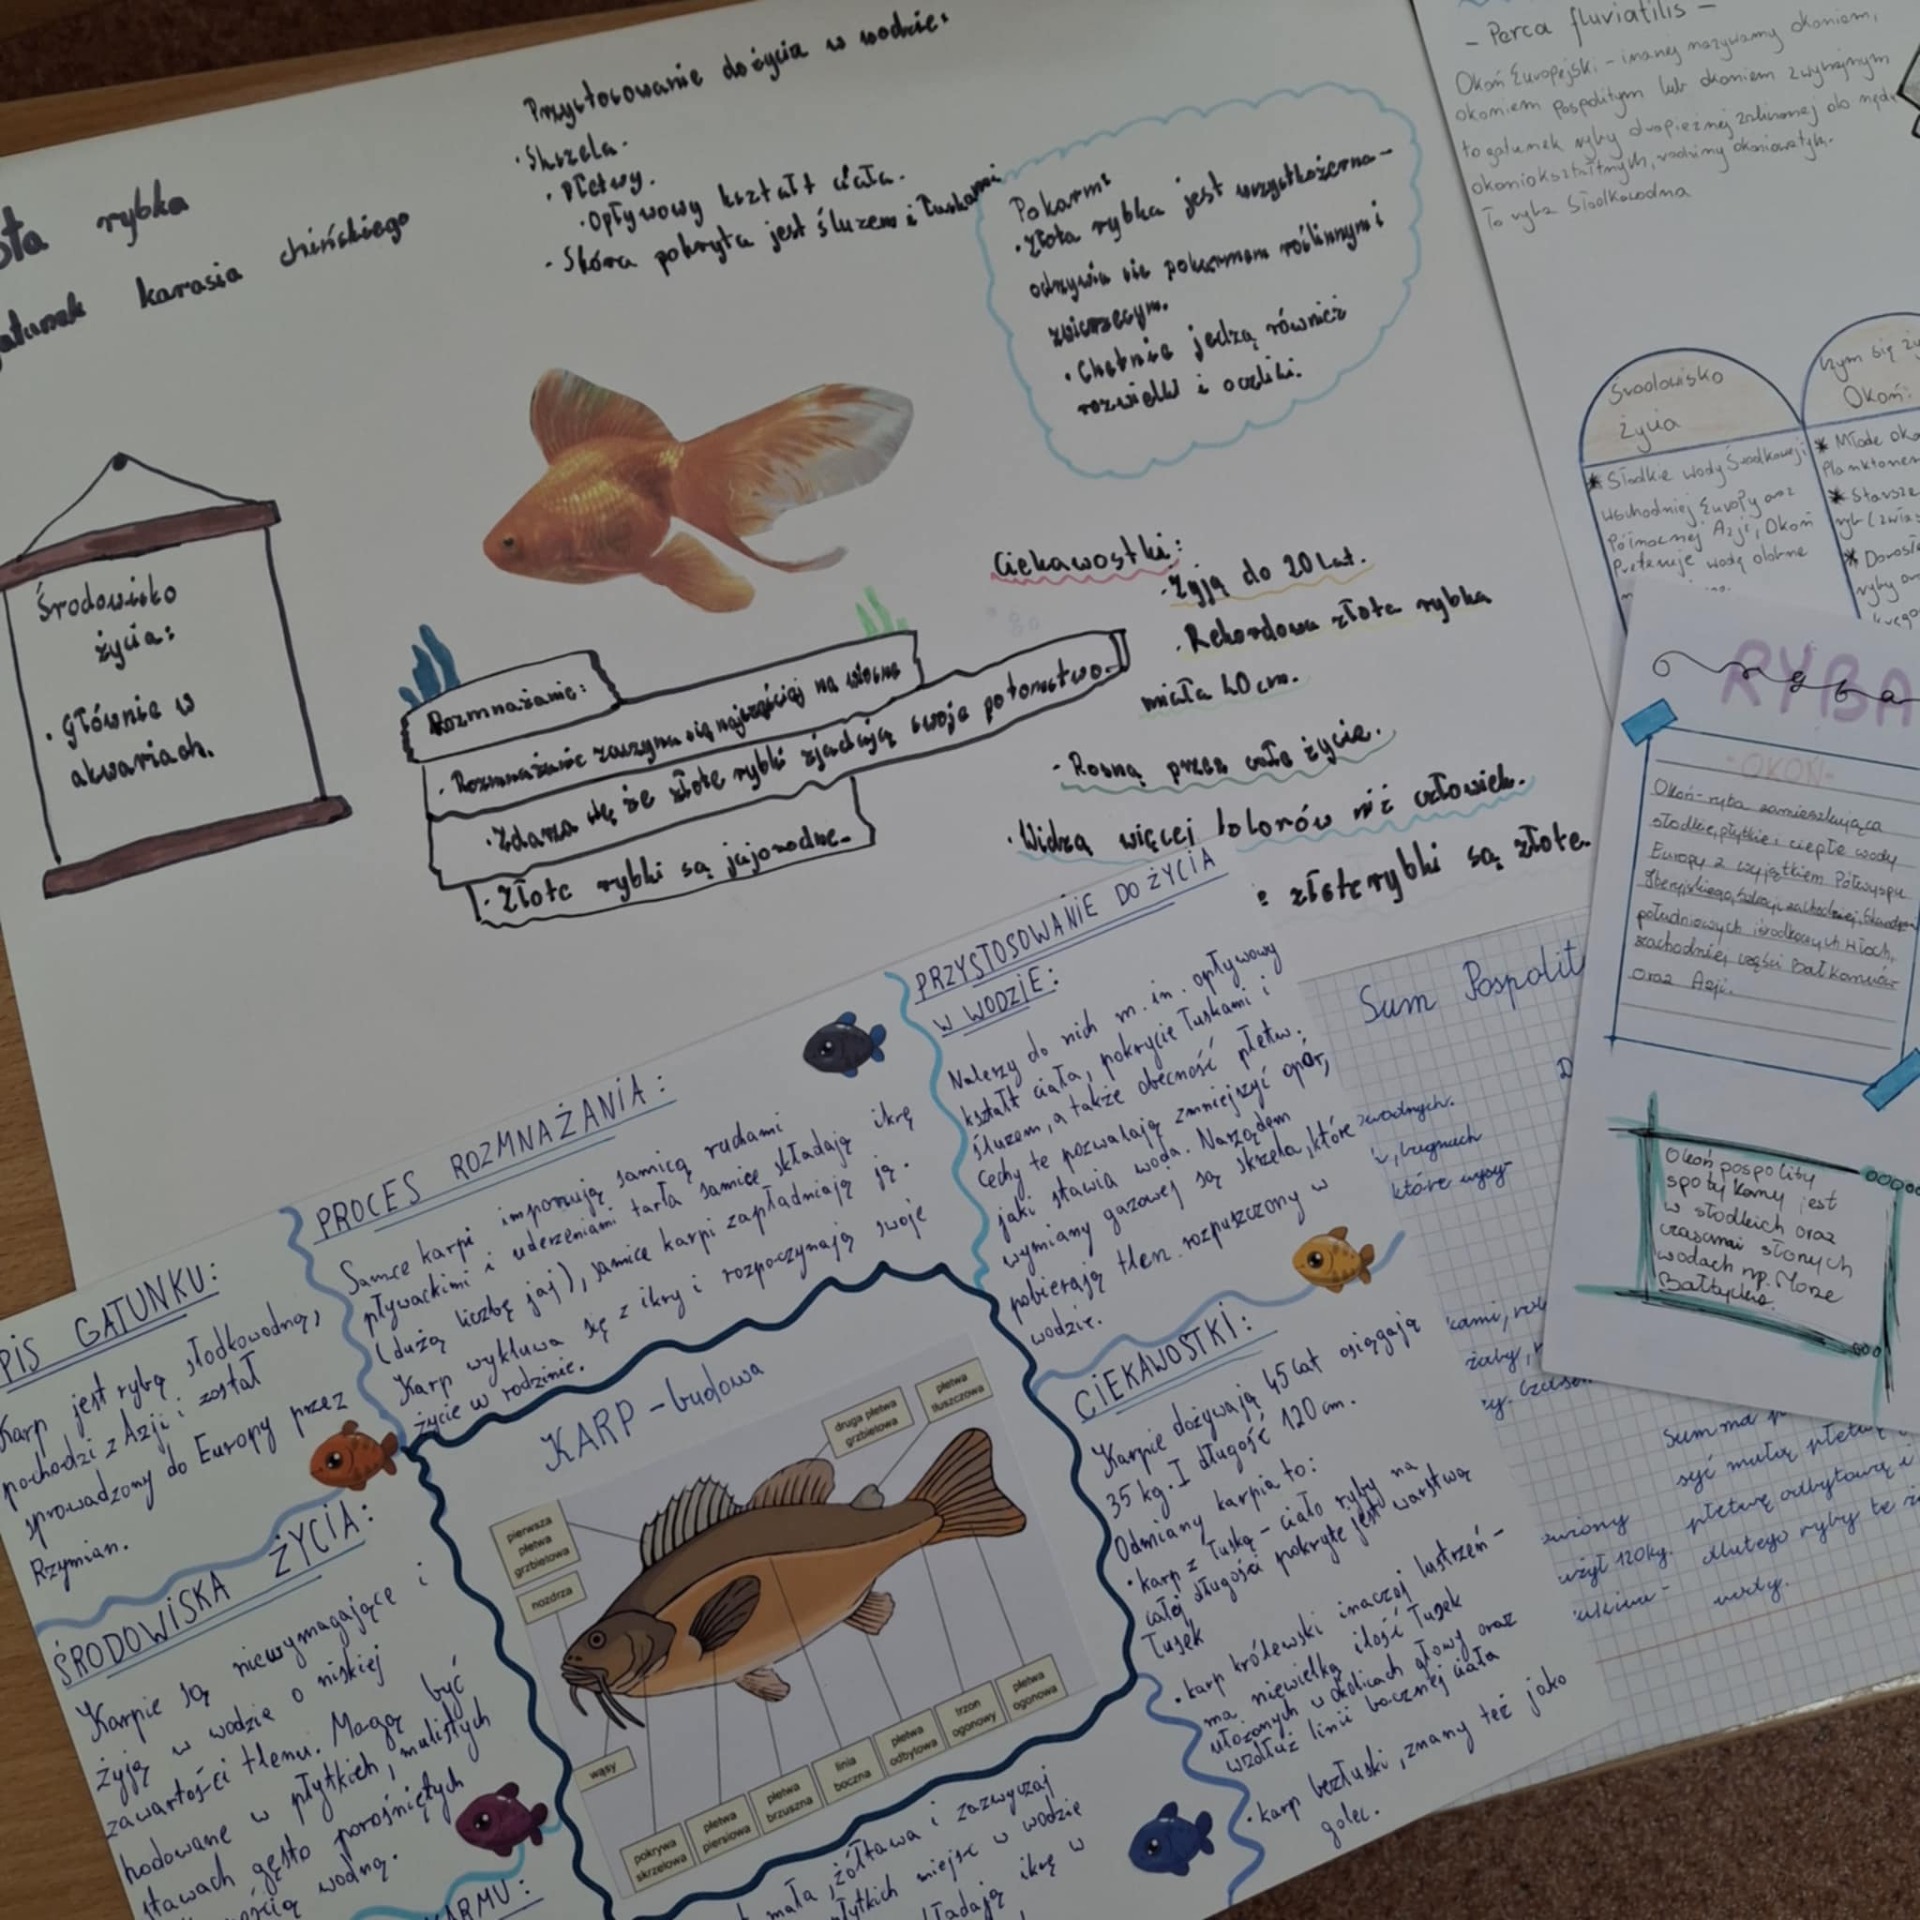 rybka
karasia chińskiego
Przystosowanie do życia w wodzie:
· Skrzela.
· Płetwy.
· Opływowy kształt ciała.
- Skóra pokryta jest śluzem i łuskami
Pokarm:
· Złota rybka jest wszystkożerna-
odżywia się pokarmem roślinnym i
zwierzęcym.
· Chętnie jedzą również
rozwielki i oczliki.
Środowisko
życia:
· Głównie w
akwariach.
Rozmnażanie:
· Rozmnażanie zaczyna się najczęściej na wiosnę
· Zdarza się, że złote rybki zjadają swoje potomstwo.
· Złote rybki są jajorodne.
Ciekawostki:
· Żyją do 20 lat.
· Rekordowa złota rybka
miała 40 cm.
- Rosną przez całe życie.
· Widzą więcej kolorów niż człowiek.
złote rybki są złote.
- Perca fluviatilis -
Okoń Europejski - inaczej nazywamy okoniem,
okoniem pospolitym lub okoniem zwyczajnym
to gatunek ryby drapieżnej zaliczanej do rzędu
okoniokształtnych, rodziny okoniowatych.
To ryba słodkowodna
Środowisko
życia
* Słodkie wody Środkowej i
wschodniej Europy oraz
Północnej Azji, Okoń
Preferuje wodę
czym się
Okoń:
* Młode
Planktonem
* Starsze
ryb
* Dorosłe
ryby
RYBA
ryba
-OKOŃ-
Okoń-ryba zamieszkująca
słodkie, płytkie i ciepłe wody
Europy z wyjątkiem Półwyspu
Iberyjskiego, Szkocji, zachodniej
południowych i środkowych Włoch,
zachodniej części Bałkanów
oraz Azji.
Okoń pospolity
spotykany jest
w słodkich oraz
czasami słonych
wodach np. Morze
Bałtyckie.
Sum Pospolit
które
żaby,
Sum ma
płetwę odbytową i
dlatego ryby te
wody.
120kg.
PIS GATUNKU:
Karp jest rybą słodkowodną,
pochodzi z Azji i został
sprowadzony do Europy przez
Rzymian.
PROCES ROZMNAŻANIA:
Samce karpi imponują samicą rudami
pływackimi i uderzeniami tarła samice składają ikrę
(dużą liczbę jaj), samice karpi zapładniają ją.
Karp wykluwa się z ikry i rozpoczynają swoje
życie w rodzinie.
PRZYSTOSOWANIE DO ŻYCIA
W WODZIE:
Należy do nich m.in. opływowy
kształt ciała, pokrycie łuskami i
śluzem, a także obecność płetw.
Cechy te pozwalają zmniejszyć opór,
jaki stawia woda. Narządem
wymiany gazowej są skrzela, które
pobierają tlen rozpuszczony w
wodzie.
ŚRODOWISKA ŻYCIA:
Karpie są niewymagające i
żyją w wodzie o niskiej
zawartości tlenu. Mogą być
hodowane w płytkich, mulistych
stawach gęsto porośniętych
wodną.
ARMU:
KARP - budowa
pierwsza
płetwa
grzbietowa
druga płetwa
grzbietowa
płetwa
tłuszczowa
nozdrza
wąsy
pokrywa
skrzelowa
płetwa
piersiowa
płetwa
brzuszna
linia
boczna
płetwa
odbytowa
trzon
ogonowy
płetwa
ogonowa
mała, żółtawa i zazwyczaj
płytkich miejsc w wodzie
ikrę w
CIEKAWOSTKI:
Karpie dożywają 45 lat osiągają
35 kg. I długość 120 cm.
Odmiany karpia to:
· karp z łuską - ciało ryby na
całej długości pokryte jest warstwą
łusek
· karp królewski inaczej lustrzeń-
ma niewielką ilość łusek
ułożonych w okolicach głowy oraz
wzdłuż linii bocznej ciała
· karp bezłuski, znany też jako
golec.